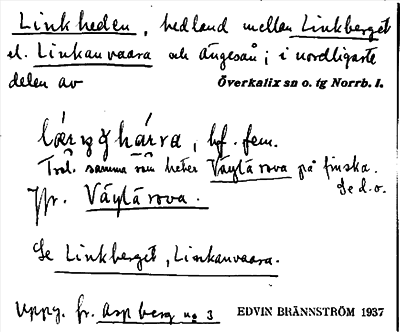 Linkheden, hedland mellan Linkberget
el. Linkanvaara och Ängesån; i nordligaste
delen av Överkalix sn o. tg Norrb. l.
bf. fem.
Trol. samma som heter Väylärova på finska.
Se d.o.
Jfr. Väylärova.
Se Linkberget, Linkanvaara.
Uppg. fr. Aspberg no 3 EDVIN BRÄNNSTRÖM 1937